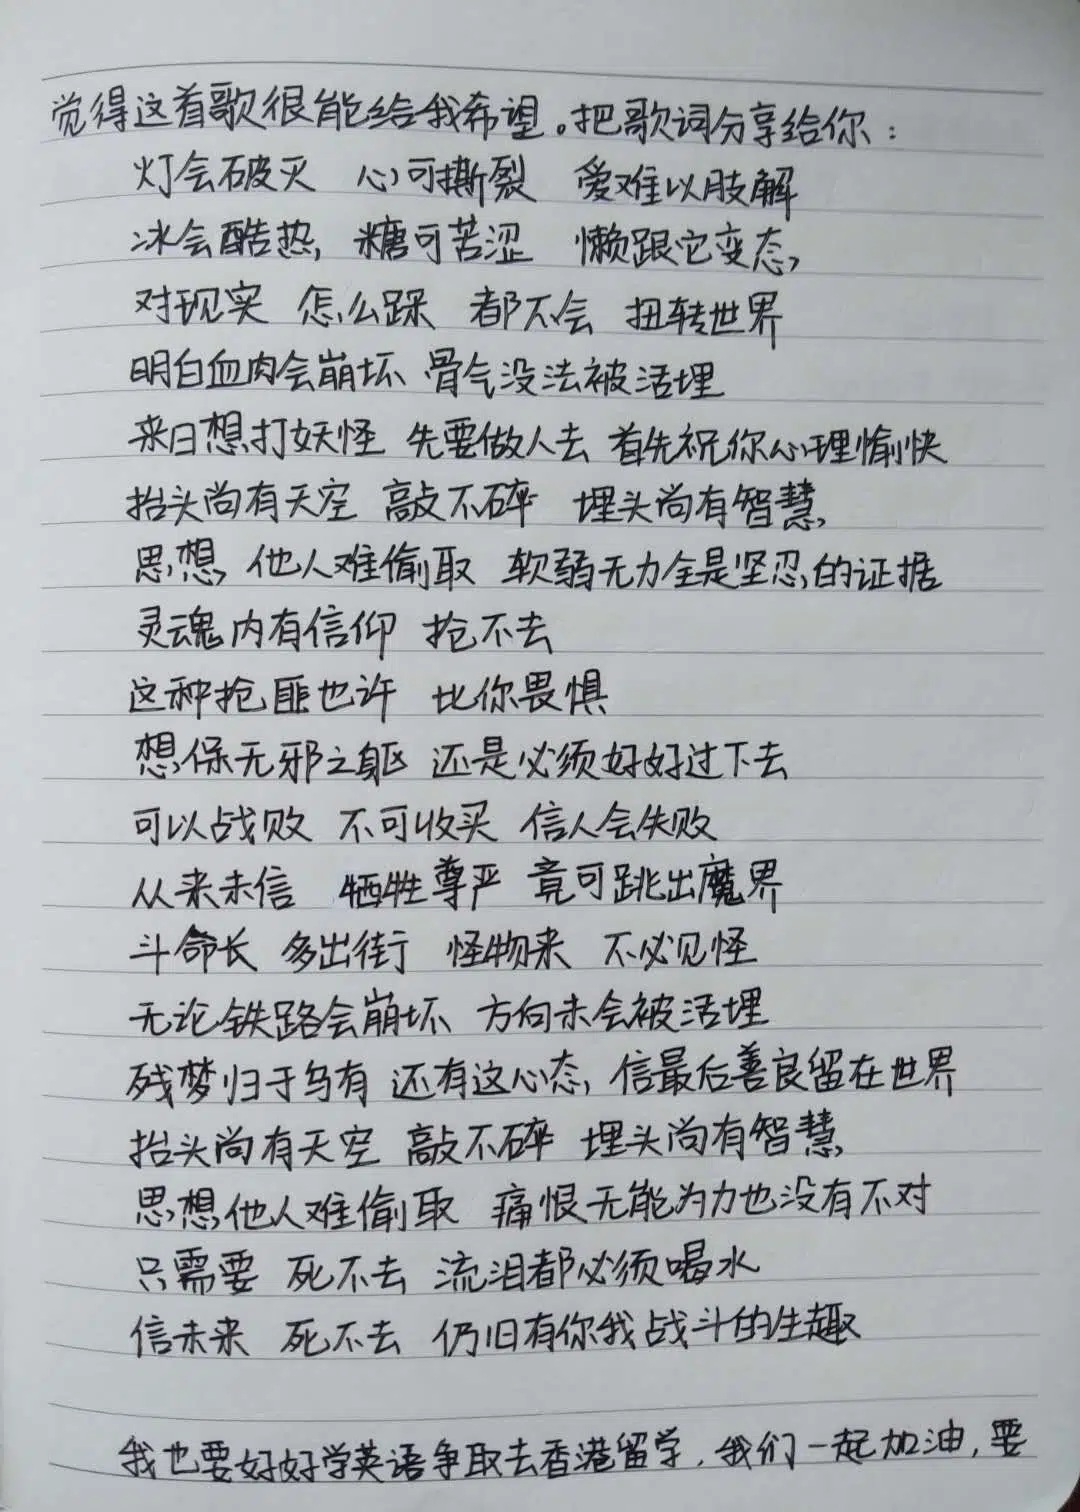 觉得这首歌很能给我希望。把歌词分享给你：
灯会破灭 心可撕裂 爱难以肢解
冰会酷热, 糖可苦涩 懒跟它变态,
对现实 怎么踩 都不会 扭转世界
明白血肉会崩坏 骨气没法被活埋
来日想打妖怪 先要做人去 首先祝你心理愉快
抬头尚有天空 敲不碎 埋头尚有智慧,
思想, 他人难偷取 软弱无力全是坚忍的证据
灵魂内有信仰 抢不去
这种抢匪也许 比你畏惧
想保无邪之躯 还是必须好好过下去
可以战败 不可收买 信人会失败
从来未信 牺牲尊严 竟可跳出魔界
斗命长 多出街 怪物来 不必见怪
无论铁路会崩坏 方向未会被活埋
残梦归于乌有 还有这心态, 信最后善良留在世界
抬头尚有天空 敲不碎 埋头尚有智慧,
思想他人难偷取 痛恨无能为力也没有不对
只需要 死不去 流泪都必须喝水
信未来 死不去 仍旧有你我战斗的生趣
我也要好好学英语争取去香港留学, 我们一起加油, 要